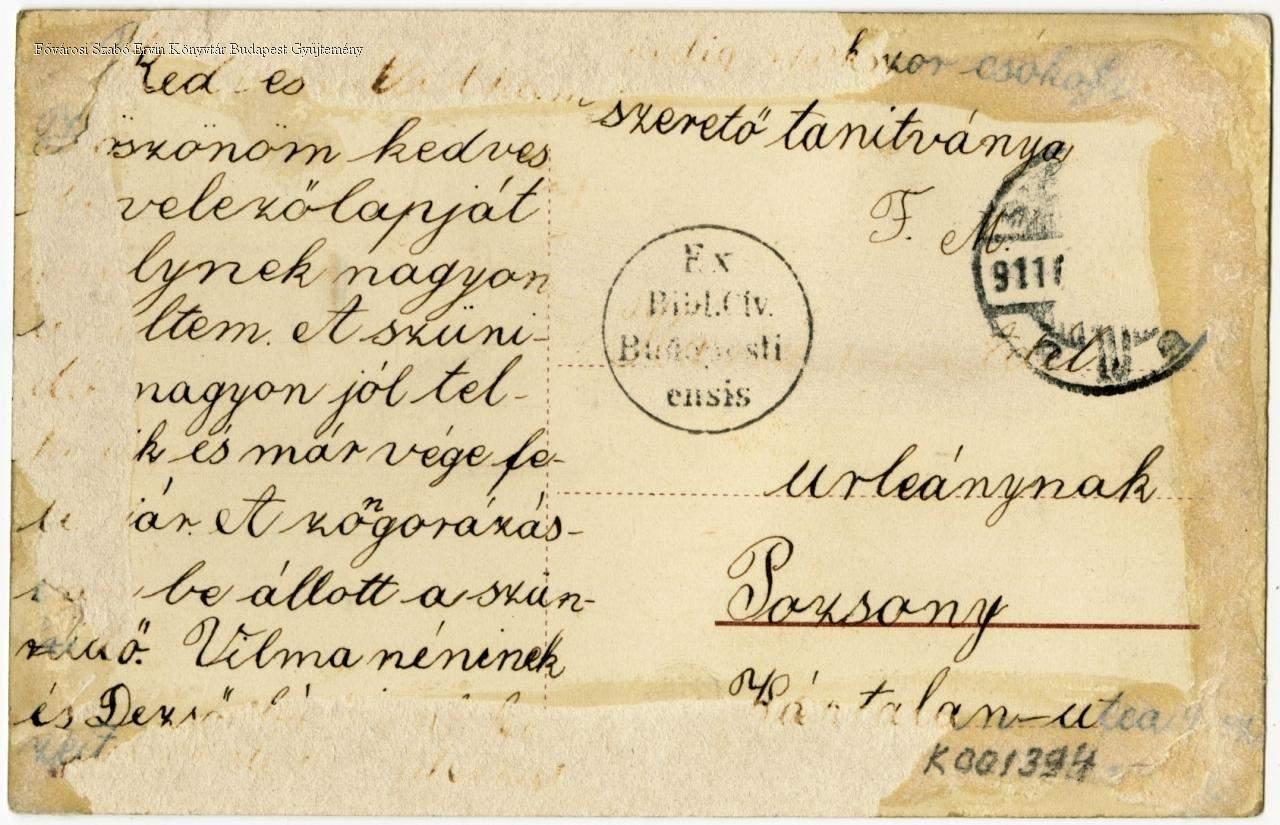 Fővárosi Szabó Ervin Könyvtár Budapest Gyűjtemény
Ked es
öszönöm kedves
velezőlapját
lynek nagyon
ltem. A szüni-
nagyon jól tel-
k és már vége fe-
jár. A zöngorázás-
be állott a szün-
Vilma néninek
és Dezső
szor csókol
szerető tanitványa
F. M.
Ex
Bibl. Civ.
Budapesti
ensis
911
urleánynak
Pozsony
utca
K001394